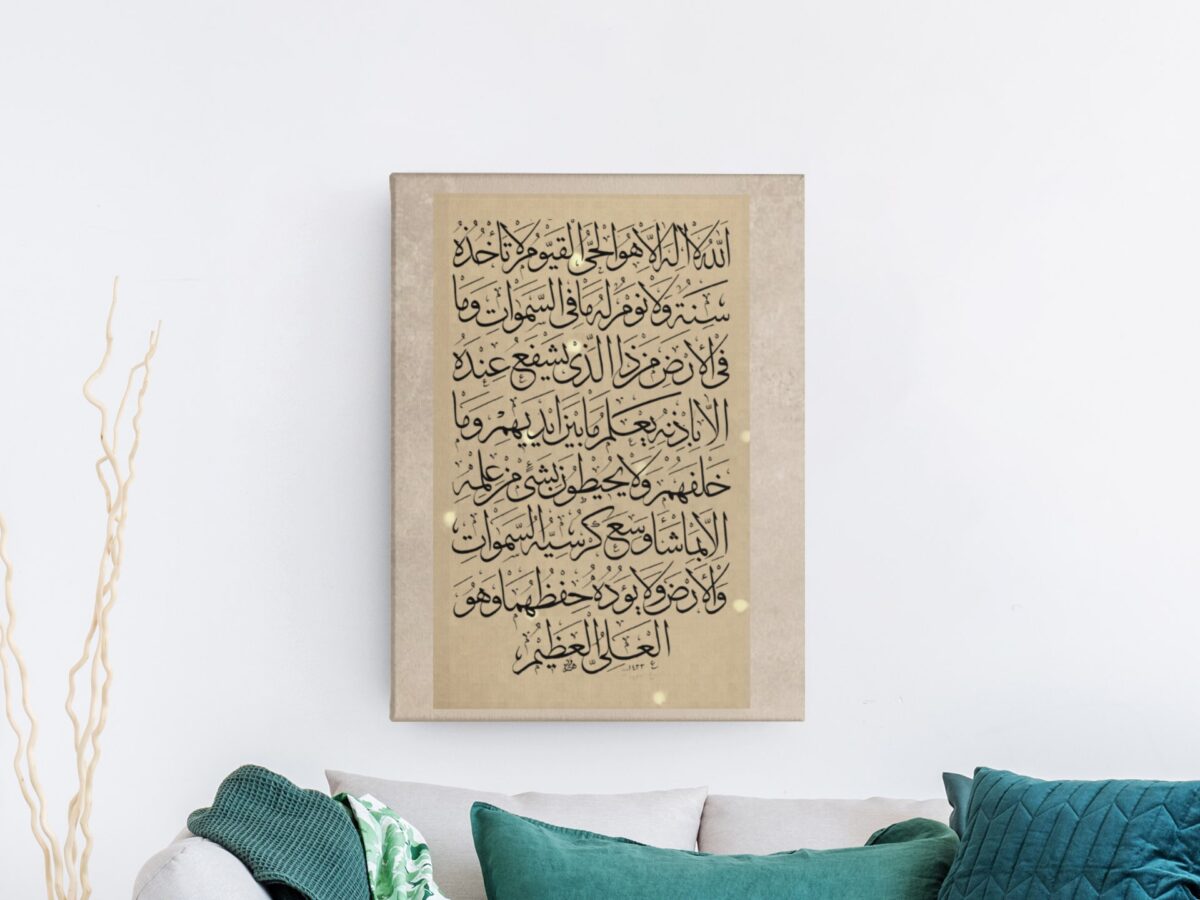 اللّٰهُ لا اله الّا هو الحيّ القيّوم لا تأخذهُ
سنة ولا نوم له ما في السّموات وما
في الأرض من ذا الّذي يشفع عنده
الّا باذنه يعلم ما بين ايديهم وما
خلفهم ولا يحيطون بشئ من علمه
الّا بما شاء وسع كرسيّه السّموات
والارض ولا يؤده حفظهما وهو
العليّ العظيم
١٤٣٣